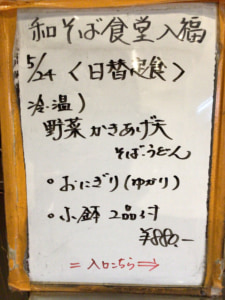 和そば食堂入福
5/24 〈日替定食〉
冷・温)
野菜かきあげ天
そば・うどん
○おにぎり(ゆかり)
○小鉢 2品付
¥880.-
=入口こちら⇒